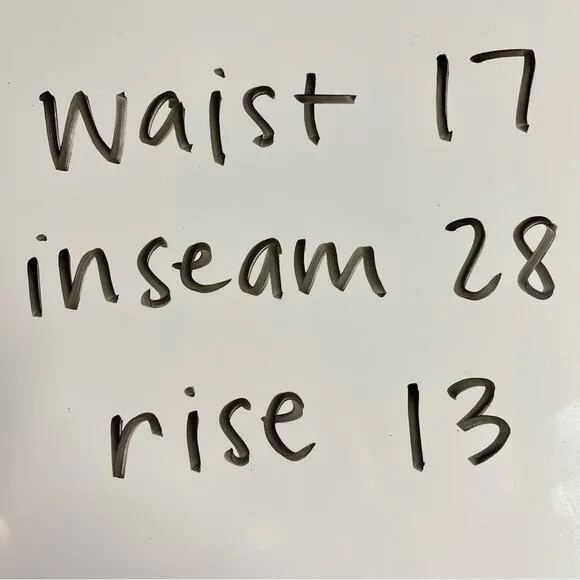 waist 17
inseam 28
rise 13